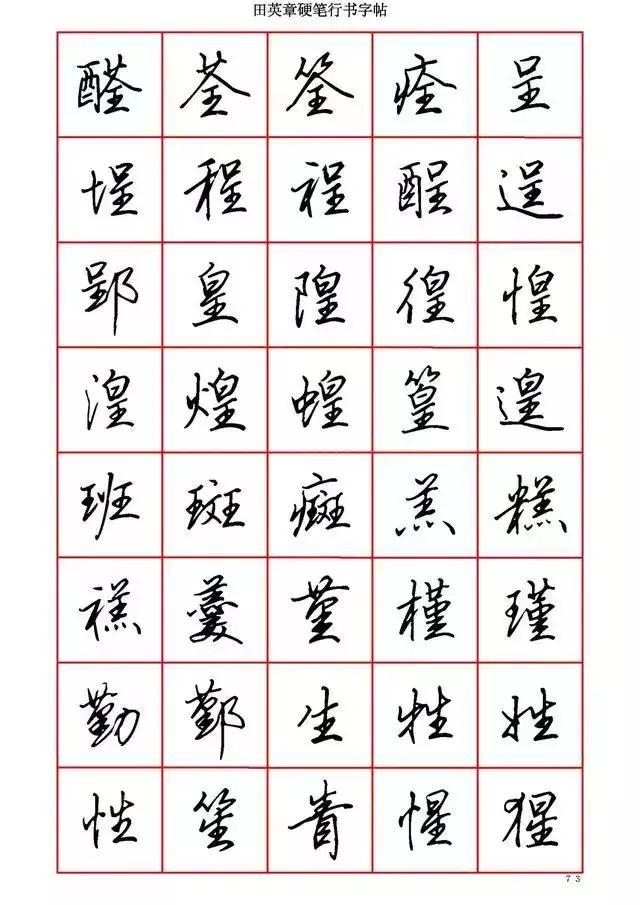 田英章硬笔行书字帖
醛 荃 筌 痊 呈
埕 程 裎 酲 逞
郢 皇 隍 徨 惶
湟 煌 蝗 篁 遑
班 斑 癍 羔 糕
禚 羹 堇 槿 瑾
勤 鄞 生 牲 姓
性 笙 眚 惺 猩
73